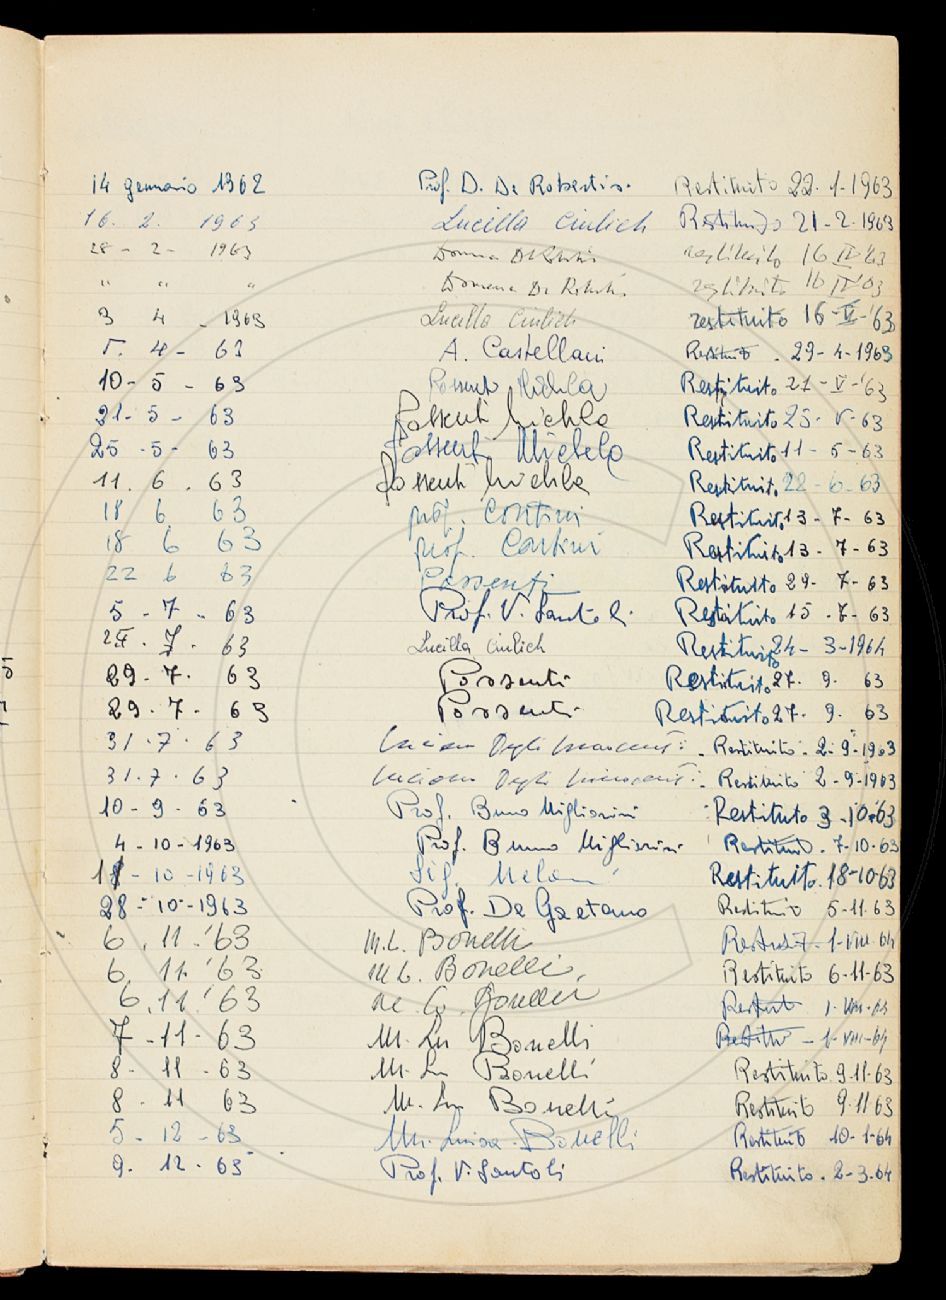 14 gennaio 1962 Prof. D. De Robertis. Restituito 22.1.1963
16. 2. 1963 Lucilla Ciulich Restituito 21-2-1963
28 - 2 - 1963 Restituito 16 IV '63
" " " Domenico De Robertis restituito 16 IV '63
3 4 - 1963 Lucilla Ciulich restituito 16-V-'63
5. 4 - 63 A. Castellani Restituito. 29-4-1963
10 - 5 - 63 Possenti Michela Restituito 21-V-'63
21 - 5 - 63 Possenti Michela Restituito 25-V-63
25 - 5 - 63 Possenti Michela Restituito 11 - 5 - 63
11. 6. 63 Possenti Michela Restituito. 22-6-63
18 6 63 prof. Contini Restituito 13 - 7 - 63
18 6 63 prof. Contini Restituito 13 - 7 - 63
22 6 63 Possenti Restituito 29 - 7 - 63
5 - 7 - 63 Prof. V. Santoli Restituito 15 - 7 - 63
7. 63 Lucilla Ciulich Restituito 24 - 3 - 1964
29. 7. 63 Possenti Restituito 27. 9. 63
29. 7. 63 Possenti Restituito 27. 9. 63
31. 7. 63 Luciana Degli Innocenti. Restituito. 2-9-1963
31. 7. 63 Luciana Degli Innocenti. Restituito 2-9-1963
10 - 9 - 63 Prof. Bruno Migliorini Restituto 3-10-63
4 - 10 - 1963 Prof. Bruno Migliorini Restituito. 7-10-63
18 - 10 - 1963 Sig. Meloni Restituito. 18-10-63
28 - 10 - 1963 Prof. De Gaetano Restituito 5-11-63
6. 11. '63 M.L. Bonelli 1-VIII-64
6. 11. '63 M.L. Bonelli Restituito 6-11-63
6. 11. '63 M.L. Bonelli 1-VIII-64
7 - 11 - 63 M. Lu Bonelli 1-VIII-64
8 - 11 - 63 M. Lu Bonelli Restituito 9-11-63
8 - 11 63 M. Lu Bonelli Restituito 9-11-63
5 - 12 - 63 M. Luisa Bonelli Restituito 10-1-64
9. 12. 63 Prof. V. Santoli Restituito. 2-3-64